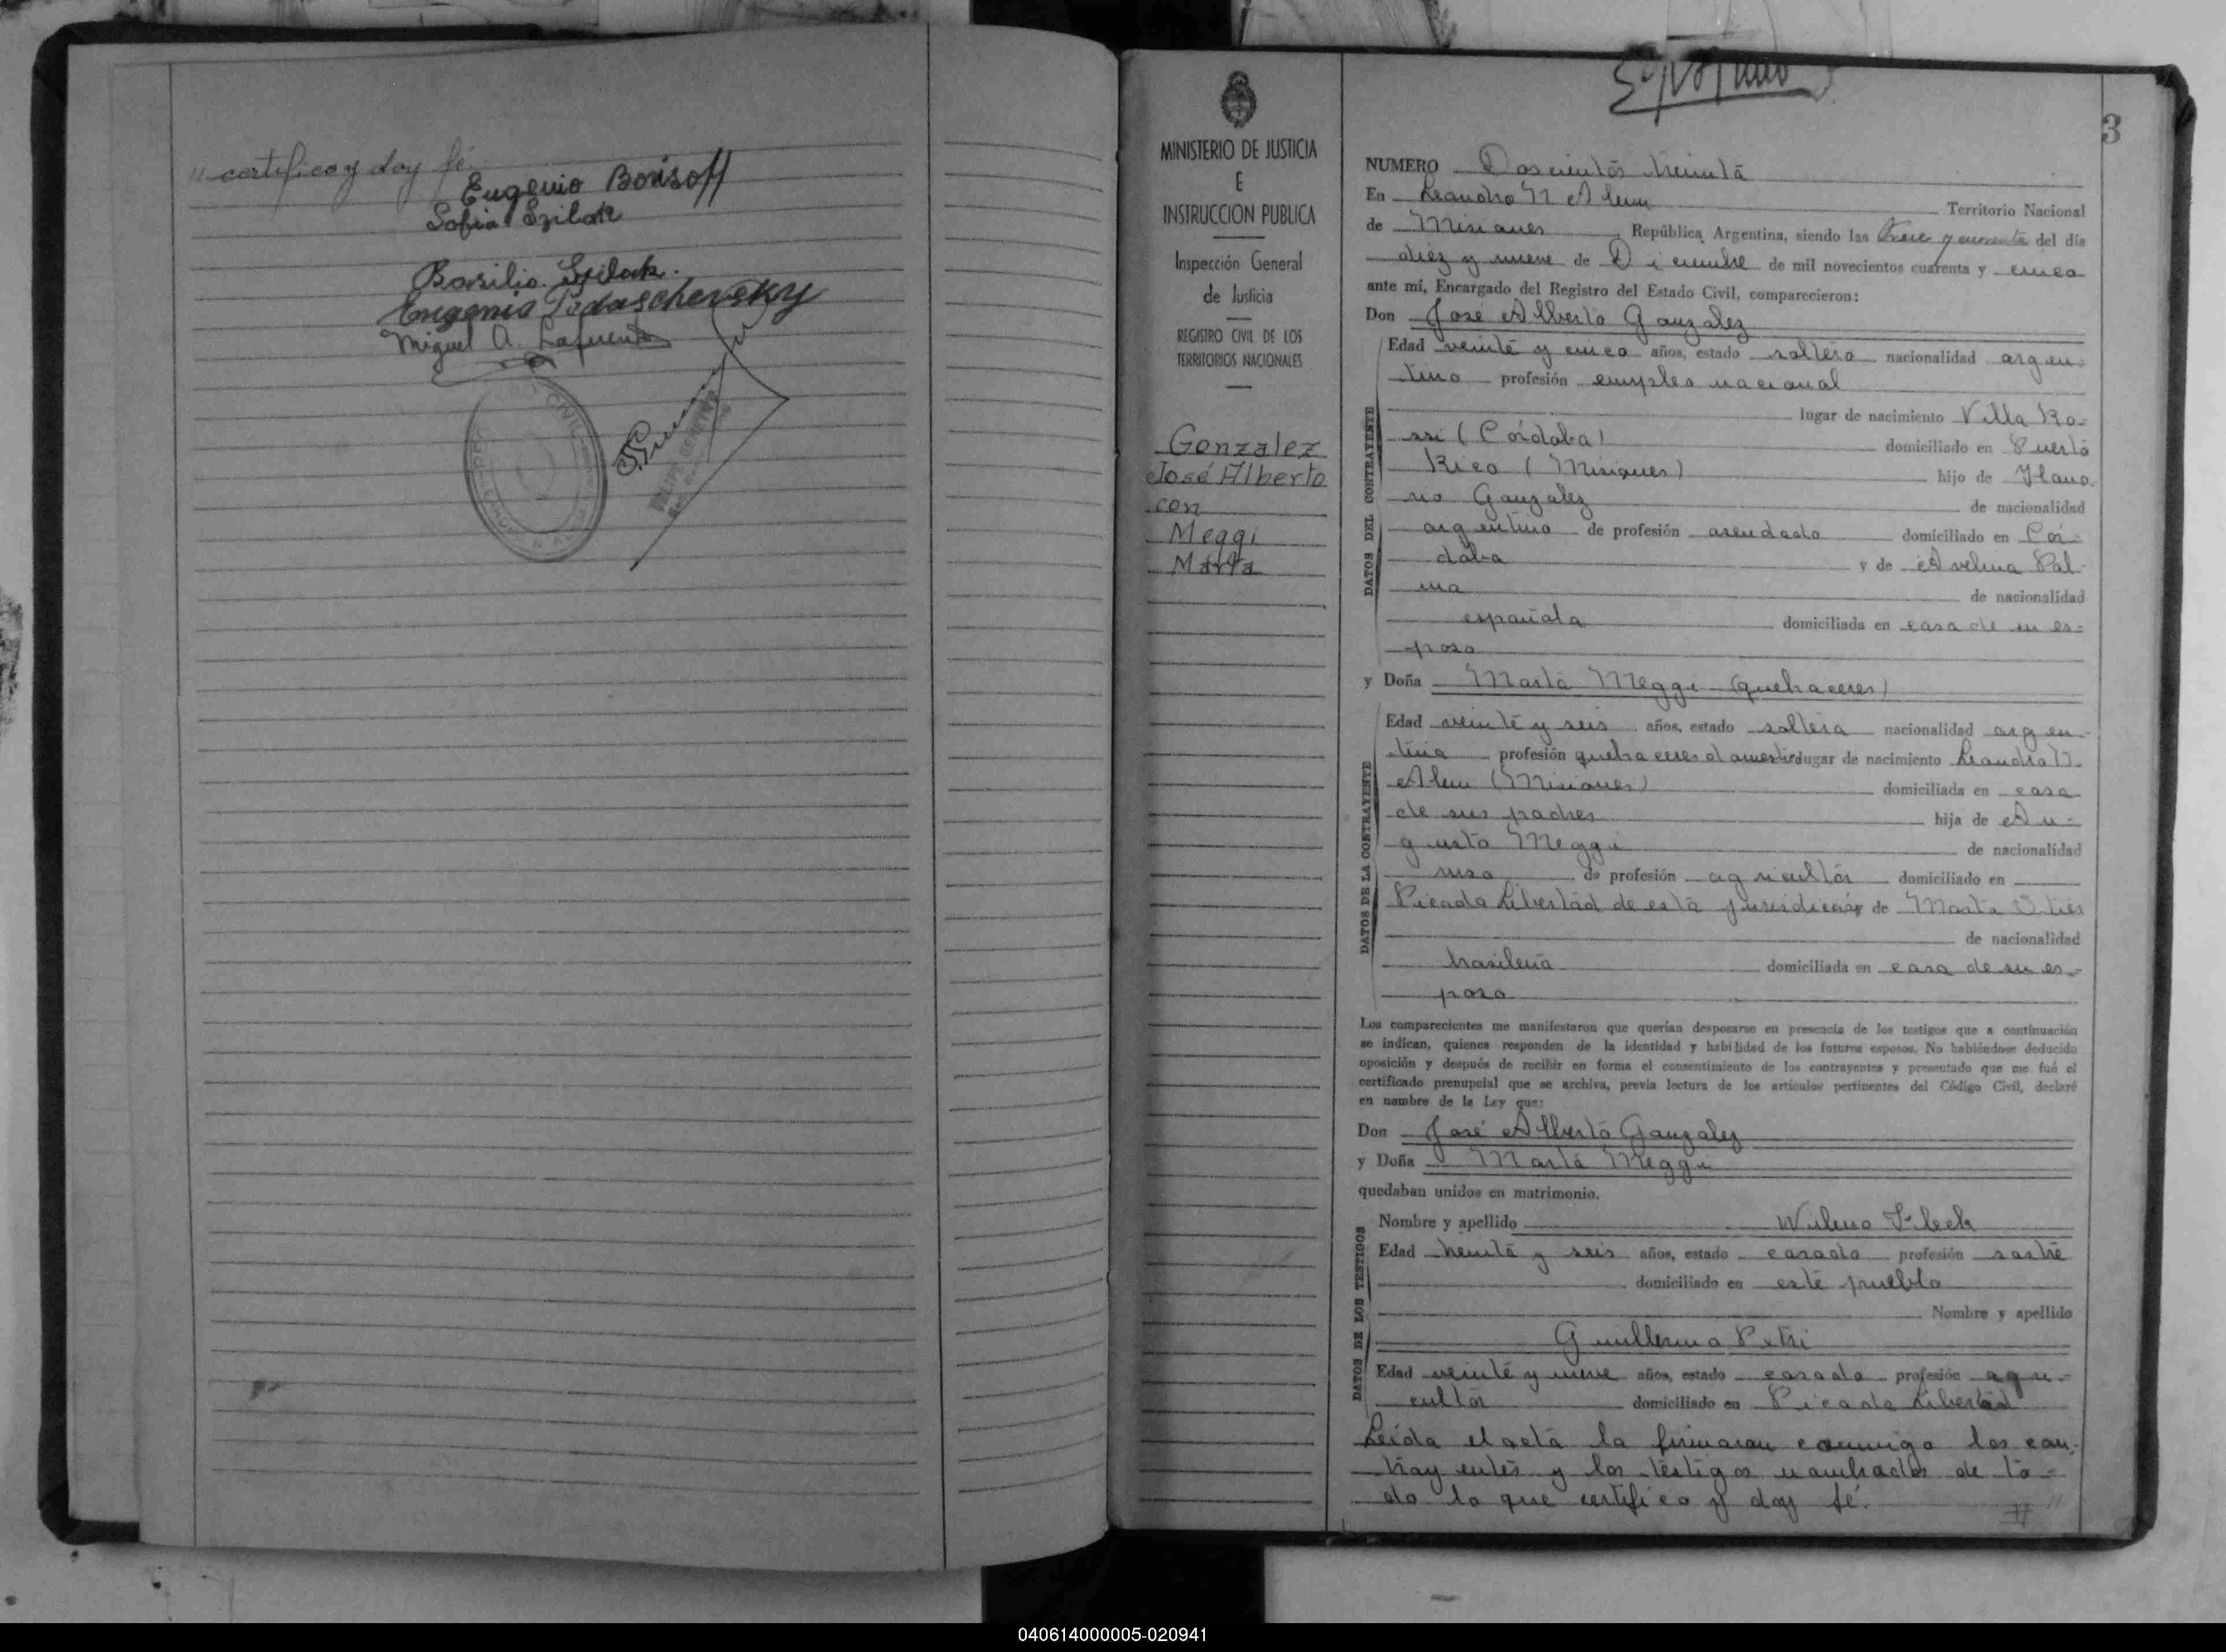 "certifico y doy fé.
Eugenio Borisoff
Sofia Szilak
Basilio Szilak.
Eugenia Padaschevsky
Miguel A. Lafuente
CIVIL
MINISTERIO DE JUSTICIA
E
INSTRUCCION PUBLICA
Inspección General
de Justicia
REGISTRO CIVIL DE LOS
TERRITORIOS NACIONALES
Gonzalez
José Alberto
con
Meggi
Marta
3
NUMERO Doscientos treinta
En Leandro N Alem Territorio Nacional
de Misiones República Argentina, siendo las y cuarenta del día
diez y nueve de Diciembre de mil novecientos cuarenta y cinco
ante mí, Encargado del Registro del Estado Civil, comparecieron:
Don José Alberto Gonzalez
DATOS DEL CONTRAYENTE
Edad veinte y cinco años, estado soltero nacionalidad argen-
tino profesión empleo nacional
lugar de nacimiento Villa Ro-
ssi (Córdoba) domiciliado en Puerto
Rico (Misiones) hijo de
Gonzalez de nacionalidad
argentino de profesión asendado domiciliado en Cór-
doba y de Avelina Pal-
ma de nacionalidad
española domiciliada en casa de su es-
poso
y Doña Marta Meggi - (quehaceres)
DATOS DE LA CONTRAYENTE
Edad veinte y seis años, estado soltera nacionalidad argen-
tina profesión quehaceres domestic lugar de nacimiento Leandro N.
Alem (Misiones) domiciliada en casa
de sus padres hija de Au-
gusto Meggi de nacionalidad
ruso de profesión agricultor domiciliado en
Picada Libertad de esta jurisdicción y de Marta
de nacionalidad
brasilena domiciliada en casa de su es-
poso
Los comparecientes me manifestaron que querían desposarse en presencia de los testigos que a continuación
se indican, quienes responden de la identidad y habilidad de los futuros esposos. No habiéndose deducido
oposición y después de recibir en forma el consentimiento de los contrayentes y presentado que me fué el
certificado prenupcial que se archiva, previa lectura de los artículos pertinentes del Código Civil, declaré
en nombre de la Ley que:
Don José Alberto Gonzalez
y Doña Marta Meggi
quedaban unidos en matrimonio.
DATOS DE LOS TESTIGOS
Nombre y apellido Fleck
Edad treinta y seis años, estado casado profesión sastre
domiciliado en este pueblo
Nombre y apellido
Guillermo Petri
Edad veinte y nueve años, estado casado profesión agri-
cultor domiciliado en Picada Libertad
Leída el acta la firmaron conmigo los con-
trayentes y los testigos nombrados de to-
do lo que certifico y doy fé.
040614000005-020941